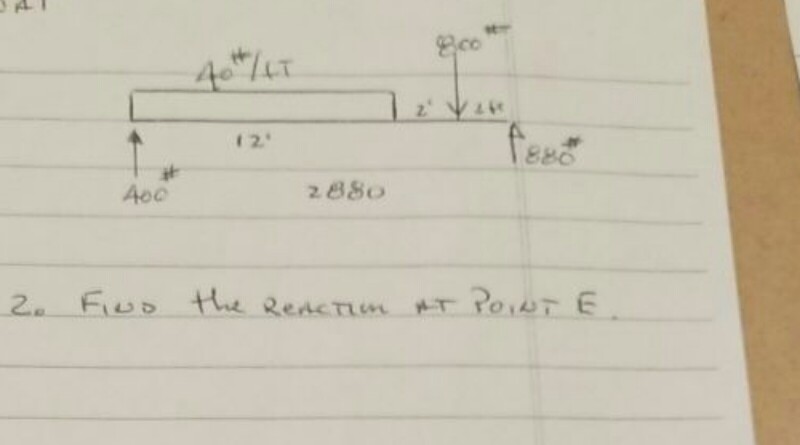 800#
40#/FT
2' 2ft
12'
880#
400#
2880
2. FIND the REACTION AT POINT E.